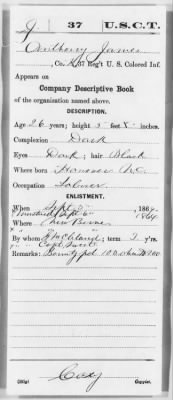 J | 37 | U.S.C.T.
Anthony James
, Co. K, 37 Reg't U. S. Colored Inf.
Appears on
Company Descriptive Book
of the organization named above.
DESCRIPTION.
Age 26 years; height 5 feet 8 inches.
Complexion Dark
Eyes Dark; hair Black
Where born N.C.
Occupation
ENLISTMENT.
When Sept 1864
Mustered Sept 6 1864
Where New Berne
By whom term 3 y'rs.
Capt
Remarks: Bounty pd 100
Copyist.